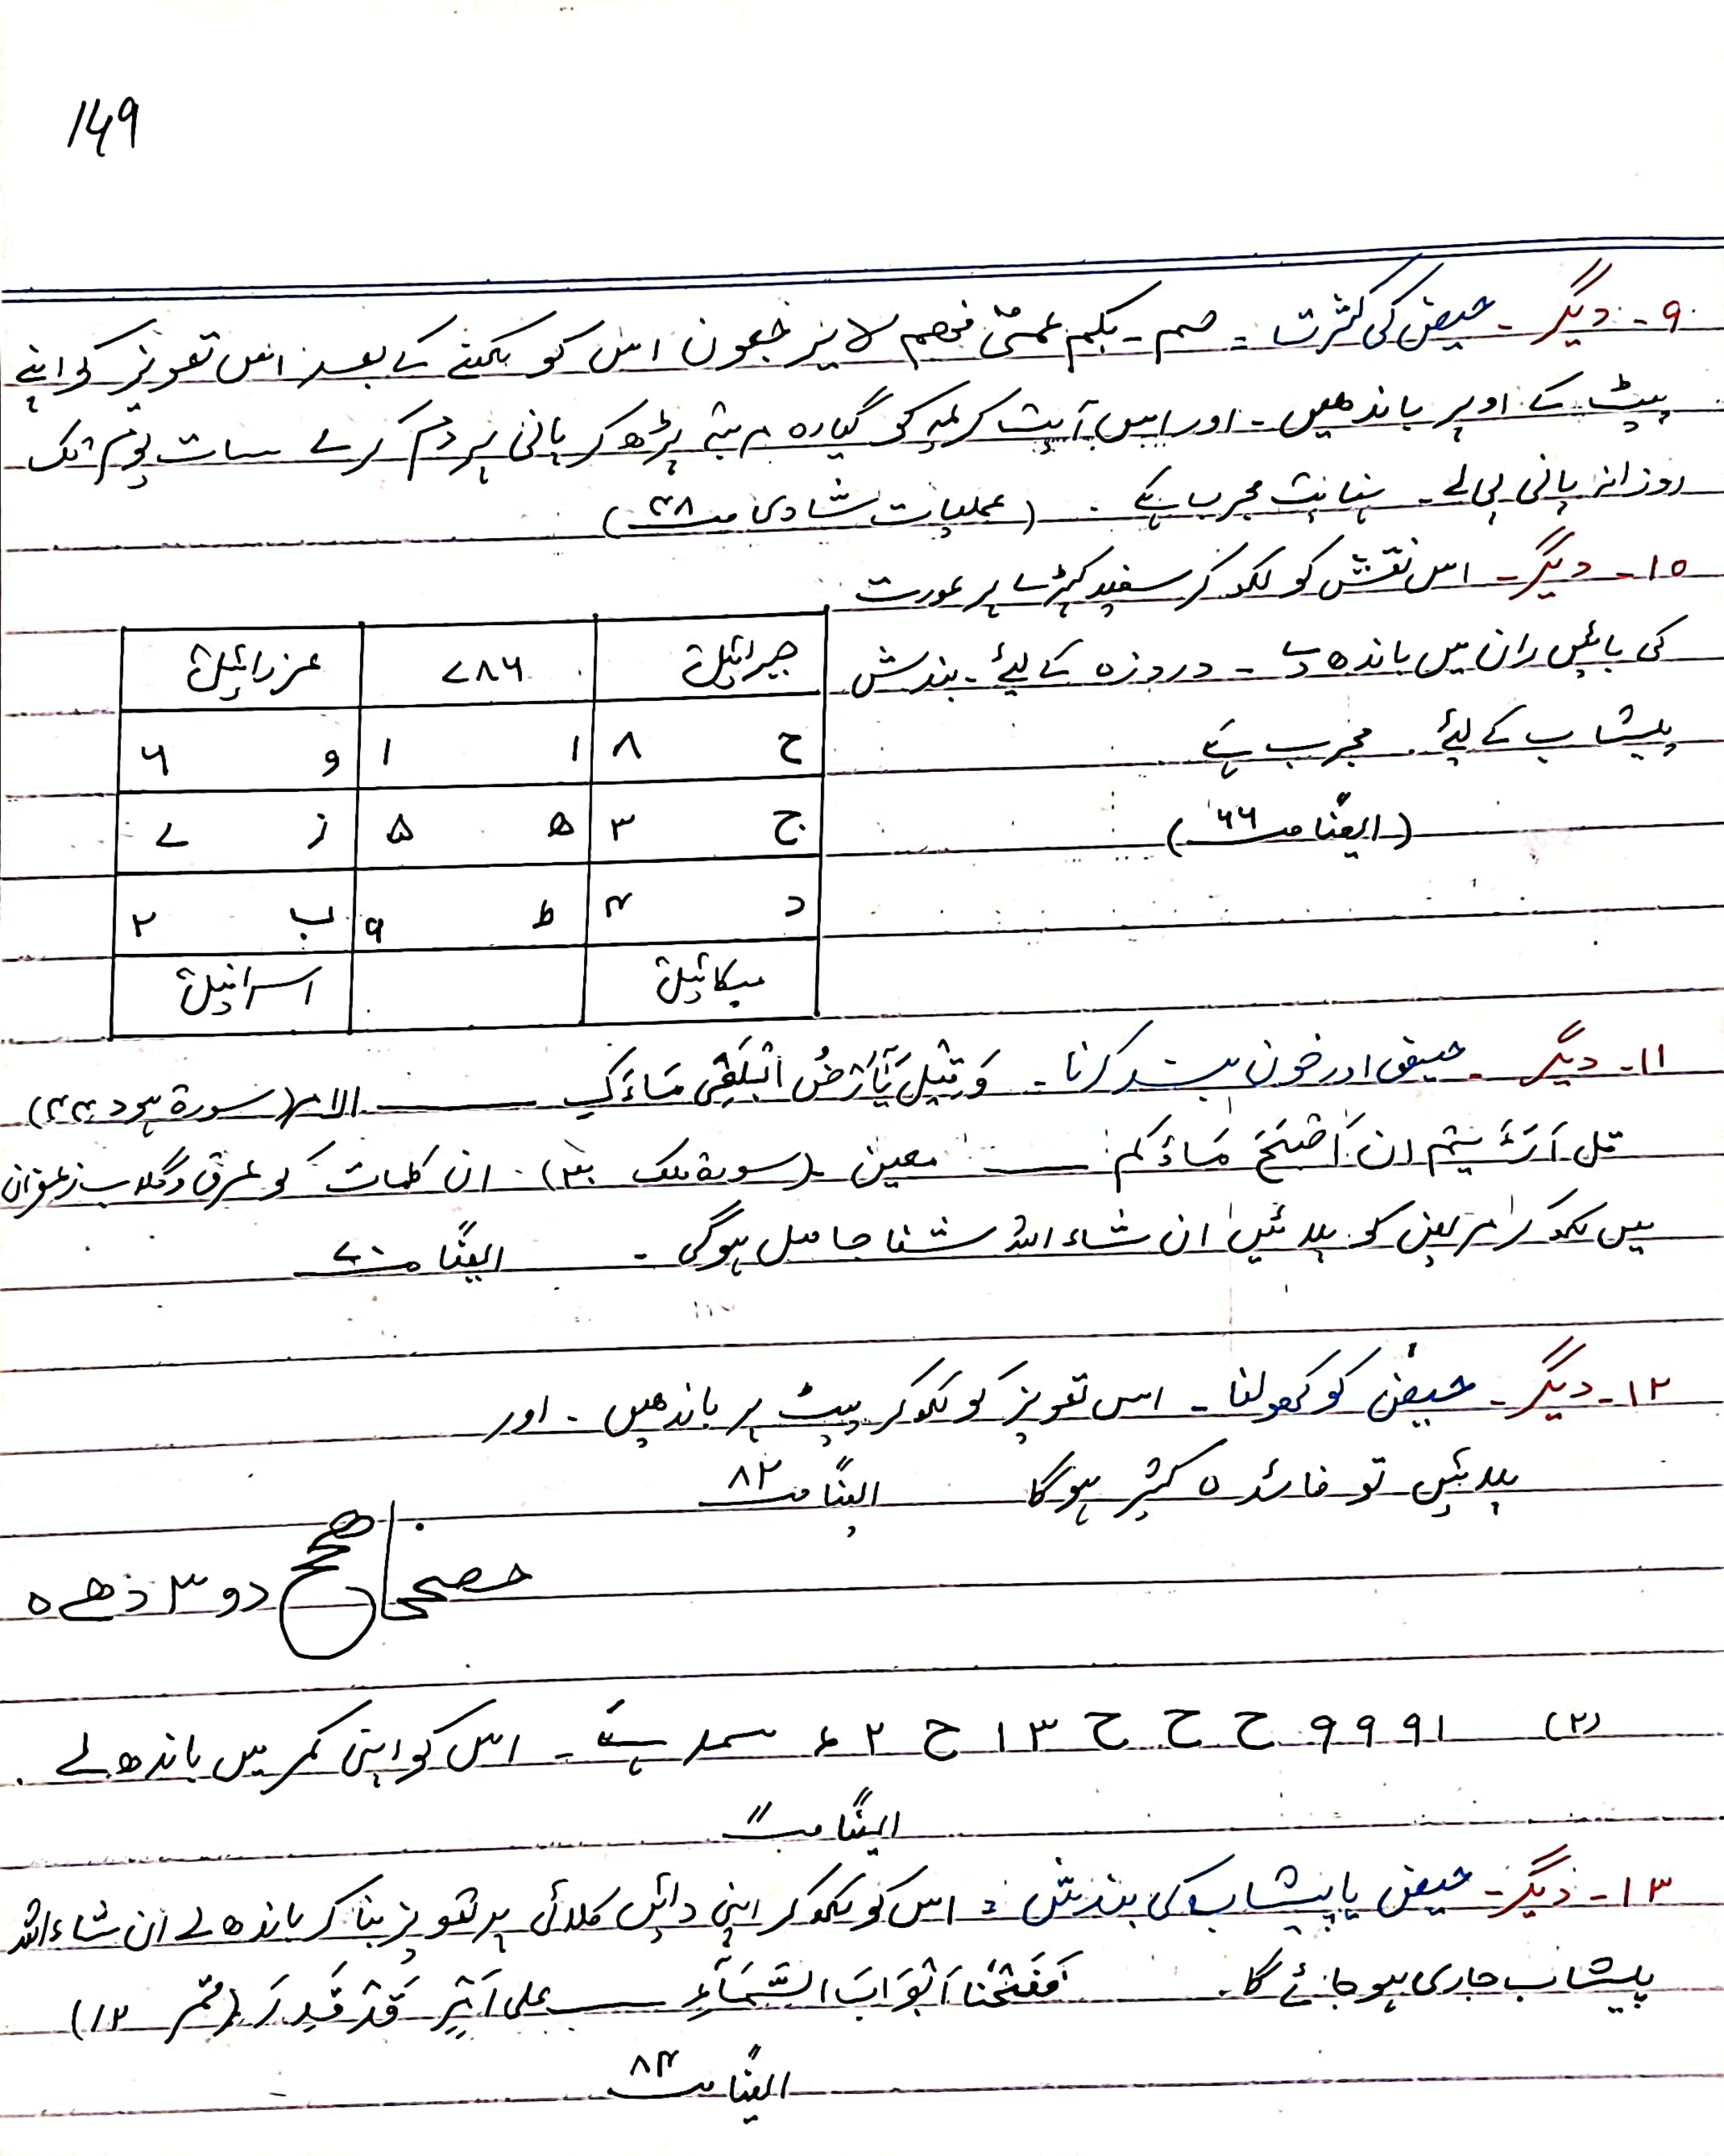 ۱۶۹
۹۔ دیگر۔ حیض کی کثرت۔ صم۔ بکم عمیٌ فھم لا یرجعون اس کو لکھنے کے بعد اس تعویز کو اپنے
پیٹ کے اوپر باندھیں۔ اور اس آیت کریمہ کو گیارہ مرتبہ پڑھ کر پانی پر دم کرے سات یوم تک
روزانہ پانی پی لے۔ نہایت مجرب ہے۔ (عملیات شادی صـ ۳۸)
۱۰۔ دیگر۔ اس نقش کو لکھ کر سفید کپڑے پر عورت
کی بائیں ران میں باندھ دے۔ دردزہ کے لیئے۔ بندش
پیشاب کے لیئے۔ مجرب ہے
(ایضًا صـ ۶۶)
جبرائیلؑ ۷۸۶ عزرائیلؑ
ح ۸ ا ۱ و ۶
ج ۳ ھ ۵ ز ۷
د ۴ ط ۹ ب ۲
میکائیلؑ اسرافیلؑ
۱۱۔ دیگر۔ حیض اور خون بند کرنا۔ وَقِیْلَ یٰٓاَرْضُ ابْلَعِیْ مَاءَکِ ــــ الامر (سورۃ ہود ۴۴)
قل اَرَءَیتم ان اَصْبَحَ مَاؤکم ــــ معین۔ (سورۃ ملک ۳۰)۔ ان کلمات کو عرق و گلاب زعفران
میں لکھ کر مریض کو پلائیں ان شاء اللہ شفا حاصل ہوگی۔ ایضًا صـ ۷۰
۱۲۔ دیگر۔ حیض کو کھولنا۔ اس تعویز کو لکھ کر پیٹ پر باندھیں۔ اور
پلائیں تو فائدہ کثیر ہوگا ایضًا صـ ۸۲
دو ۳ ذھے ہ
(۲) ۹۹۹۱ ح ح ح ۱۳ ح ۲ ء سمد ہے۔ اس کو اپنی کمر میں باندھ لے۔
ایضًا صـ "
۱۳۔ دیگر۔ حیض یا پیشاب کی بندش: اس کو لکھ کر اپنی دائیں کلائی پر تعویز بنا کر باندھ لے ان شاء اللہ
پیشاب جاری ہو جائے گا۔ فَفَتَحْنَا اَبْوَابَ السَّمَآءِ ــــ علی اَمْرٍ قَدْ قُدِرَ (قمر ۱۲)
ایضًا صـ ۸۴